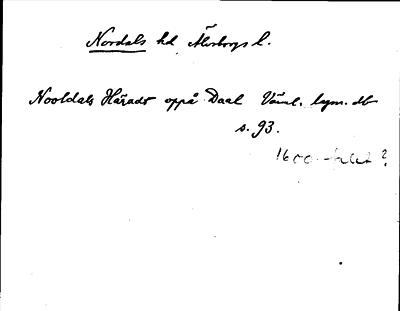 Nordals hd Älvsborgs l.
Nooldals Härads oppå Daal Vänl. lagm. db
s. 93.
1600-talet?